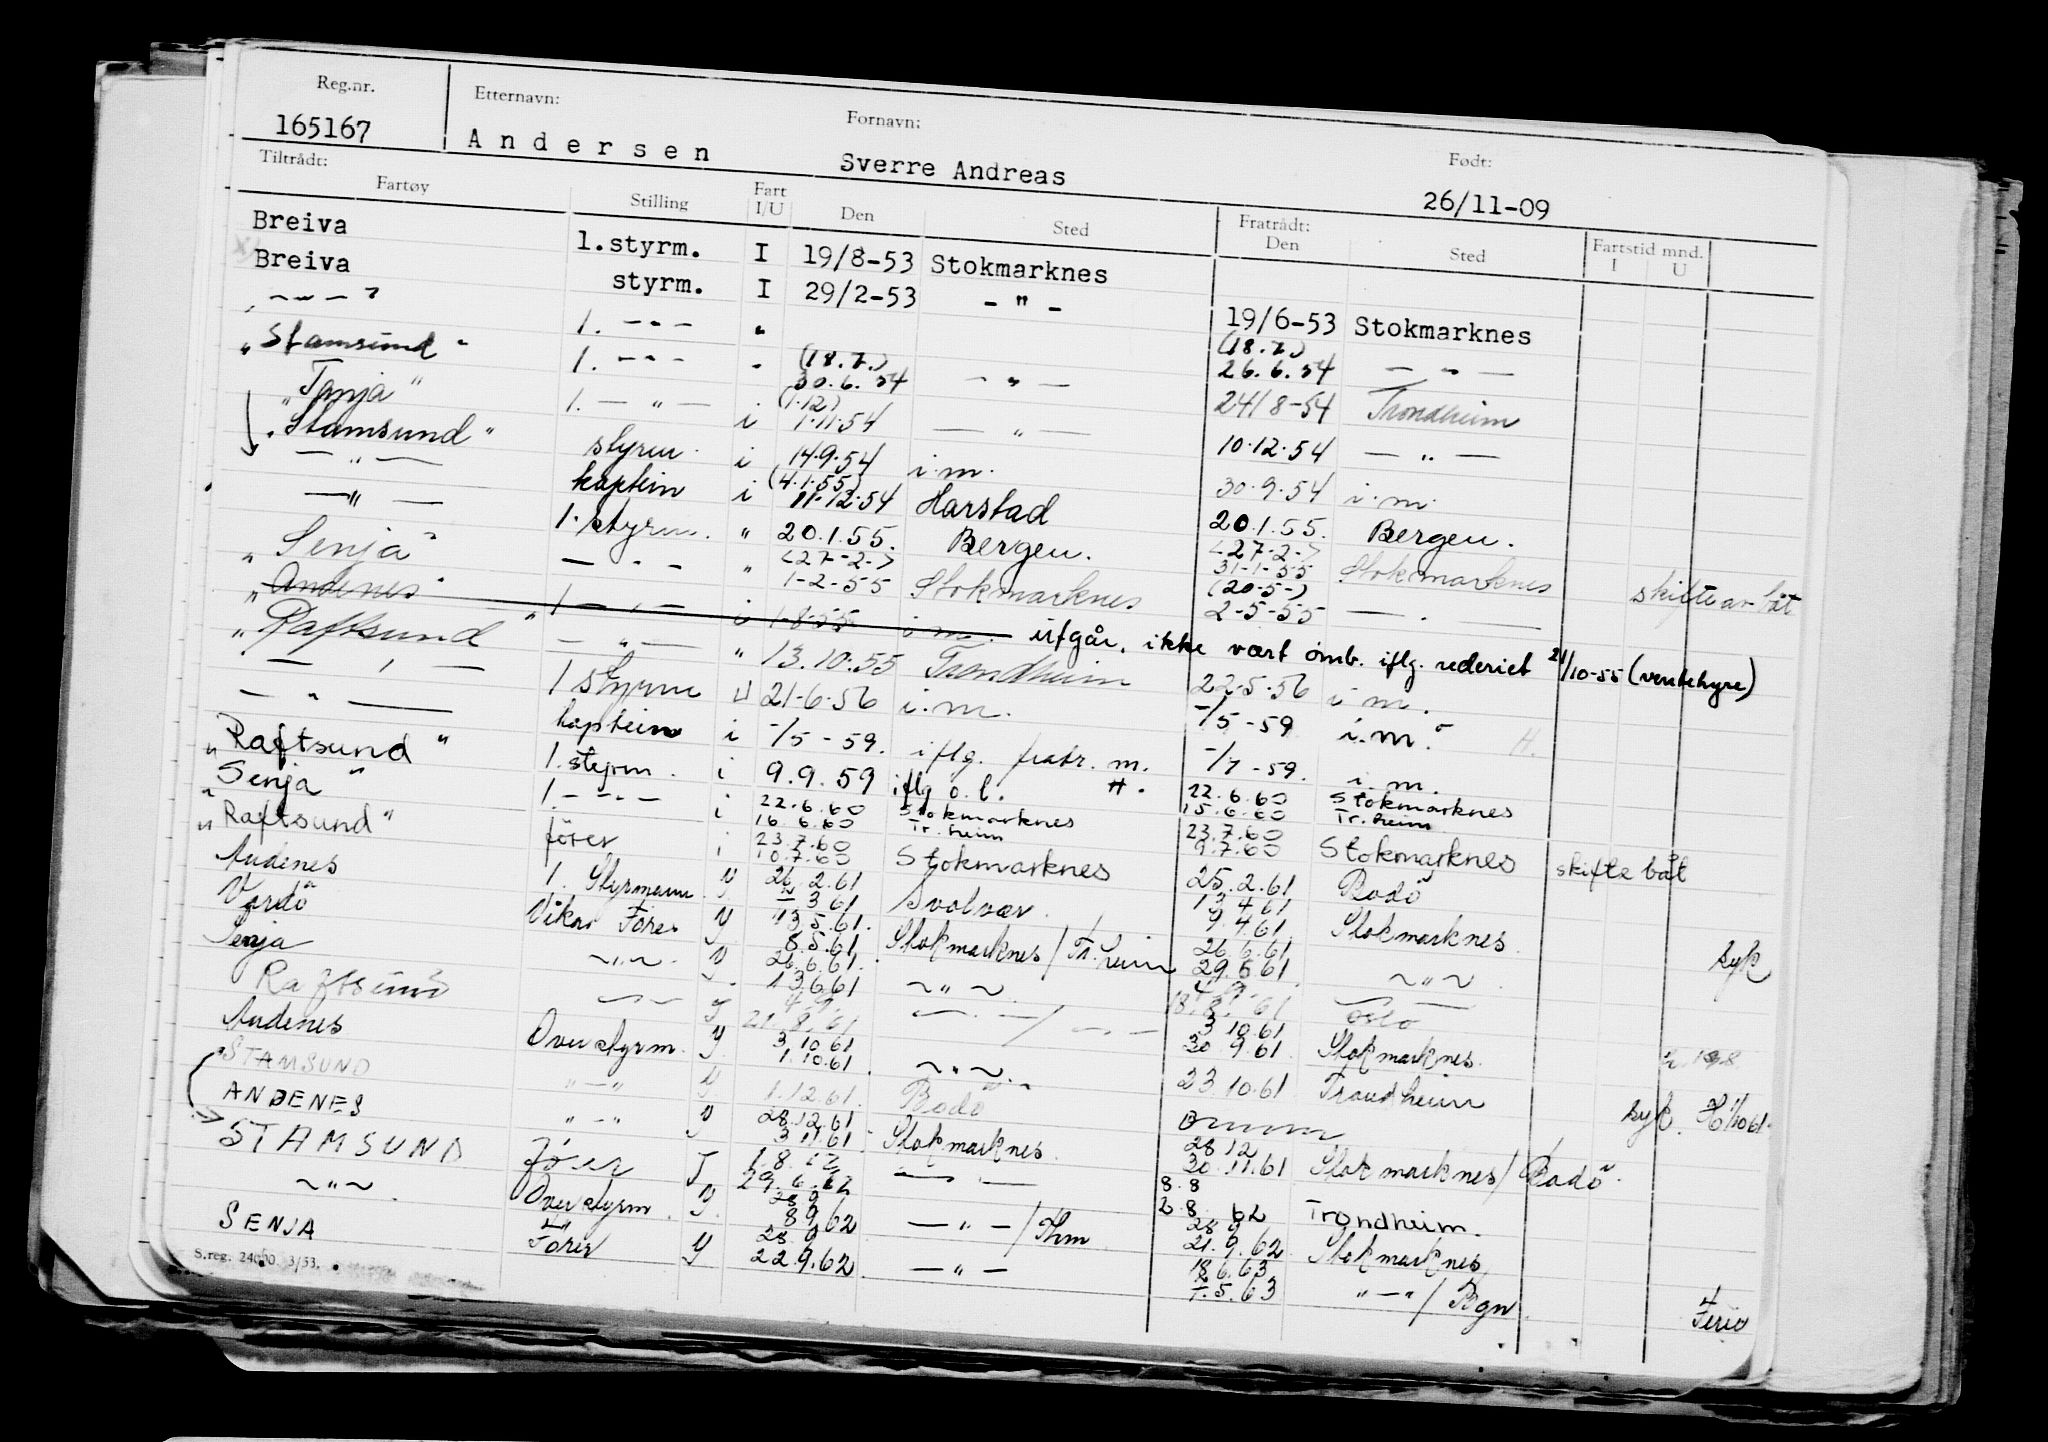 Reg.nr. Etternavn: Fornavn: Født:
165167 Andersen Sverre Andreas 26/11-09
Tiltrådt: Fratrådt:
Fartøy Stilling Fart I/U Den Sted Den Sted Fartstid mnd. I U
Breiva 1.styrm. I 19/8-53 Stokmarknes
Breiva styrm. I 29/2-53 - " - 19/6-53 Stokmarknes
- " - 1. - " - " (18.7.) 26.6.54 - " -
"Stamsund" 1. - " - " (18.7.) 30.6.54 - " - 24/8-54 Trondheim
"Tanja" 1. - " - i (1.12) 1.11.54 - " - 10.12.54 - " -
"Stamsund" styrm. i 14.9.54 i.m. 30.9.54 i.m.
- " - kaptein i (4.1.55) 11.12.54 Harstad 20.1.55. Bergen.
- " - 1. styrm. " 20.1.55. Bergen. (27-2-) 31-1-55 Stokmarknes skifte av båt
"Senja" - " - " (27-2-) 1-2-55 Stokmarknes (20-5-) 2-5-55 - " -
"Andenes" 1 - " - i 1-8-55 i.m. utgår, ikke vært omb. iflg. rederiet 21/10-55 (ventehyre)
"Raftsund" - " - " 13.10.55 Trondheim 22.5.56 i.m.
- " - 1 styrm U 21-6-56 i.m. -/5-59 i.m. H.
- " - kaptein i -/5-59. iflg. fratr. m. -/7-59. i.m.
"Raftsund" 1. styrm. i 9.9.59 iflg o.l. H. 22.6.60 15.6.60 Stokmarknes Tr.heim
"Senja" 1. - " - i 22.6.60 16.6.60 Stokmarknes Tr.heim 23.7.60 9.7.60 Stokmarknes skifte båt
"Raftsund" förer i 23.7.60 10.7.60 Stokmarknes 25.2.61 Bodö
Andenes 1. Styrmann 26.2.61 3 61 Svolvær. 13.4.61 9.4.61 Stokmarknes.
Vardö Vikar Förer 13.5.61. 8.5.61 Stokmarknes/Tr.heim 26.6.61 29.5.61 ~ " ~ syk
Senja ~ " ~ 26.6.61. 13.6.61 ~ " ~ 18.8.61 Oslo
Raftsund 21.8.61 3.10.61 30.9.61 Stokmarknes.
Andenes Overstyrm. 3.10.61 1.10.61 ~ " ~ 23.10.61 Trondheim syk. 1/10 61
"STAMSUND " - " 1.12.61. Bodö
ANDENES " - " 28.12.61 3.11.61 Stokmarknes. 28.12 30.11.61 Stokmarknes/Bodö.
STAMSUND förer I 1.8.62 29.6.62 - " - 8.8 2.8. 62 Trondheim.
~ " ~ Overstyrm. 28.9 8 9 62 - " - / Thm 28.9 21.9.62 Stokmarknes
SENJA Förer 28.9 22.9.62 - " - 18.6.63 .5.63 " - " / Bgn. Ferie
S.reg. 24000. 3/53.